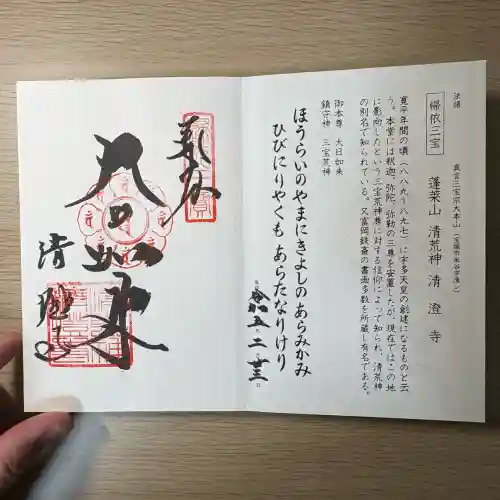 法語
帰依三宝
真言三宝宗大本山（宝塚市米谷字清シ）
蓬莱山 清荒神 清澄寺
寛平年間の頃（八八九～八九七）に宇多天皇の創建になるものと云
う。本堂には釈迦、弥陀、弥勒の三尊を安置したが、現在ではこの地
に影向したという三宝荒神尊に対する信仰によって知られ、清荒神
の別名で知られている。又富岡鉄斎の書画多数を所蔵し有名である。
御本尊 大日如来
鎮守神 三宝荒神
ほうらいのやまにきよしのあらみかみ
ひびにりやくも あらたなりけり
五 二 廿三
奉拝
大日如来
清